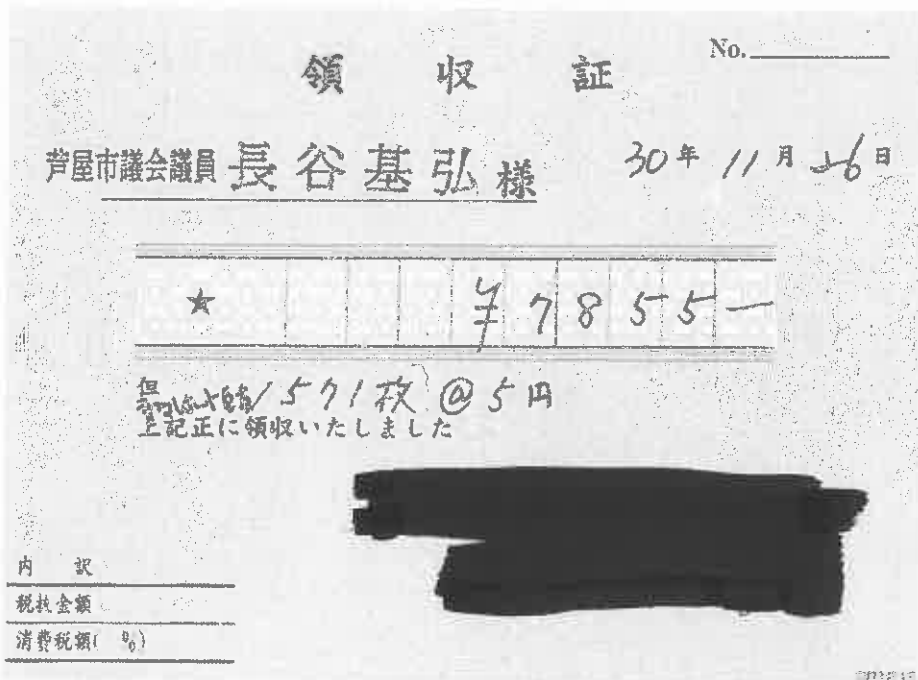 No.
領収証
芦屋市議会議員 長谷基弘様 30年11月26日
★ ¥7855-
但 1571枚 @5円
上記正に領収いたしました
内訳
税抜金額
消費税額( %)